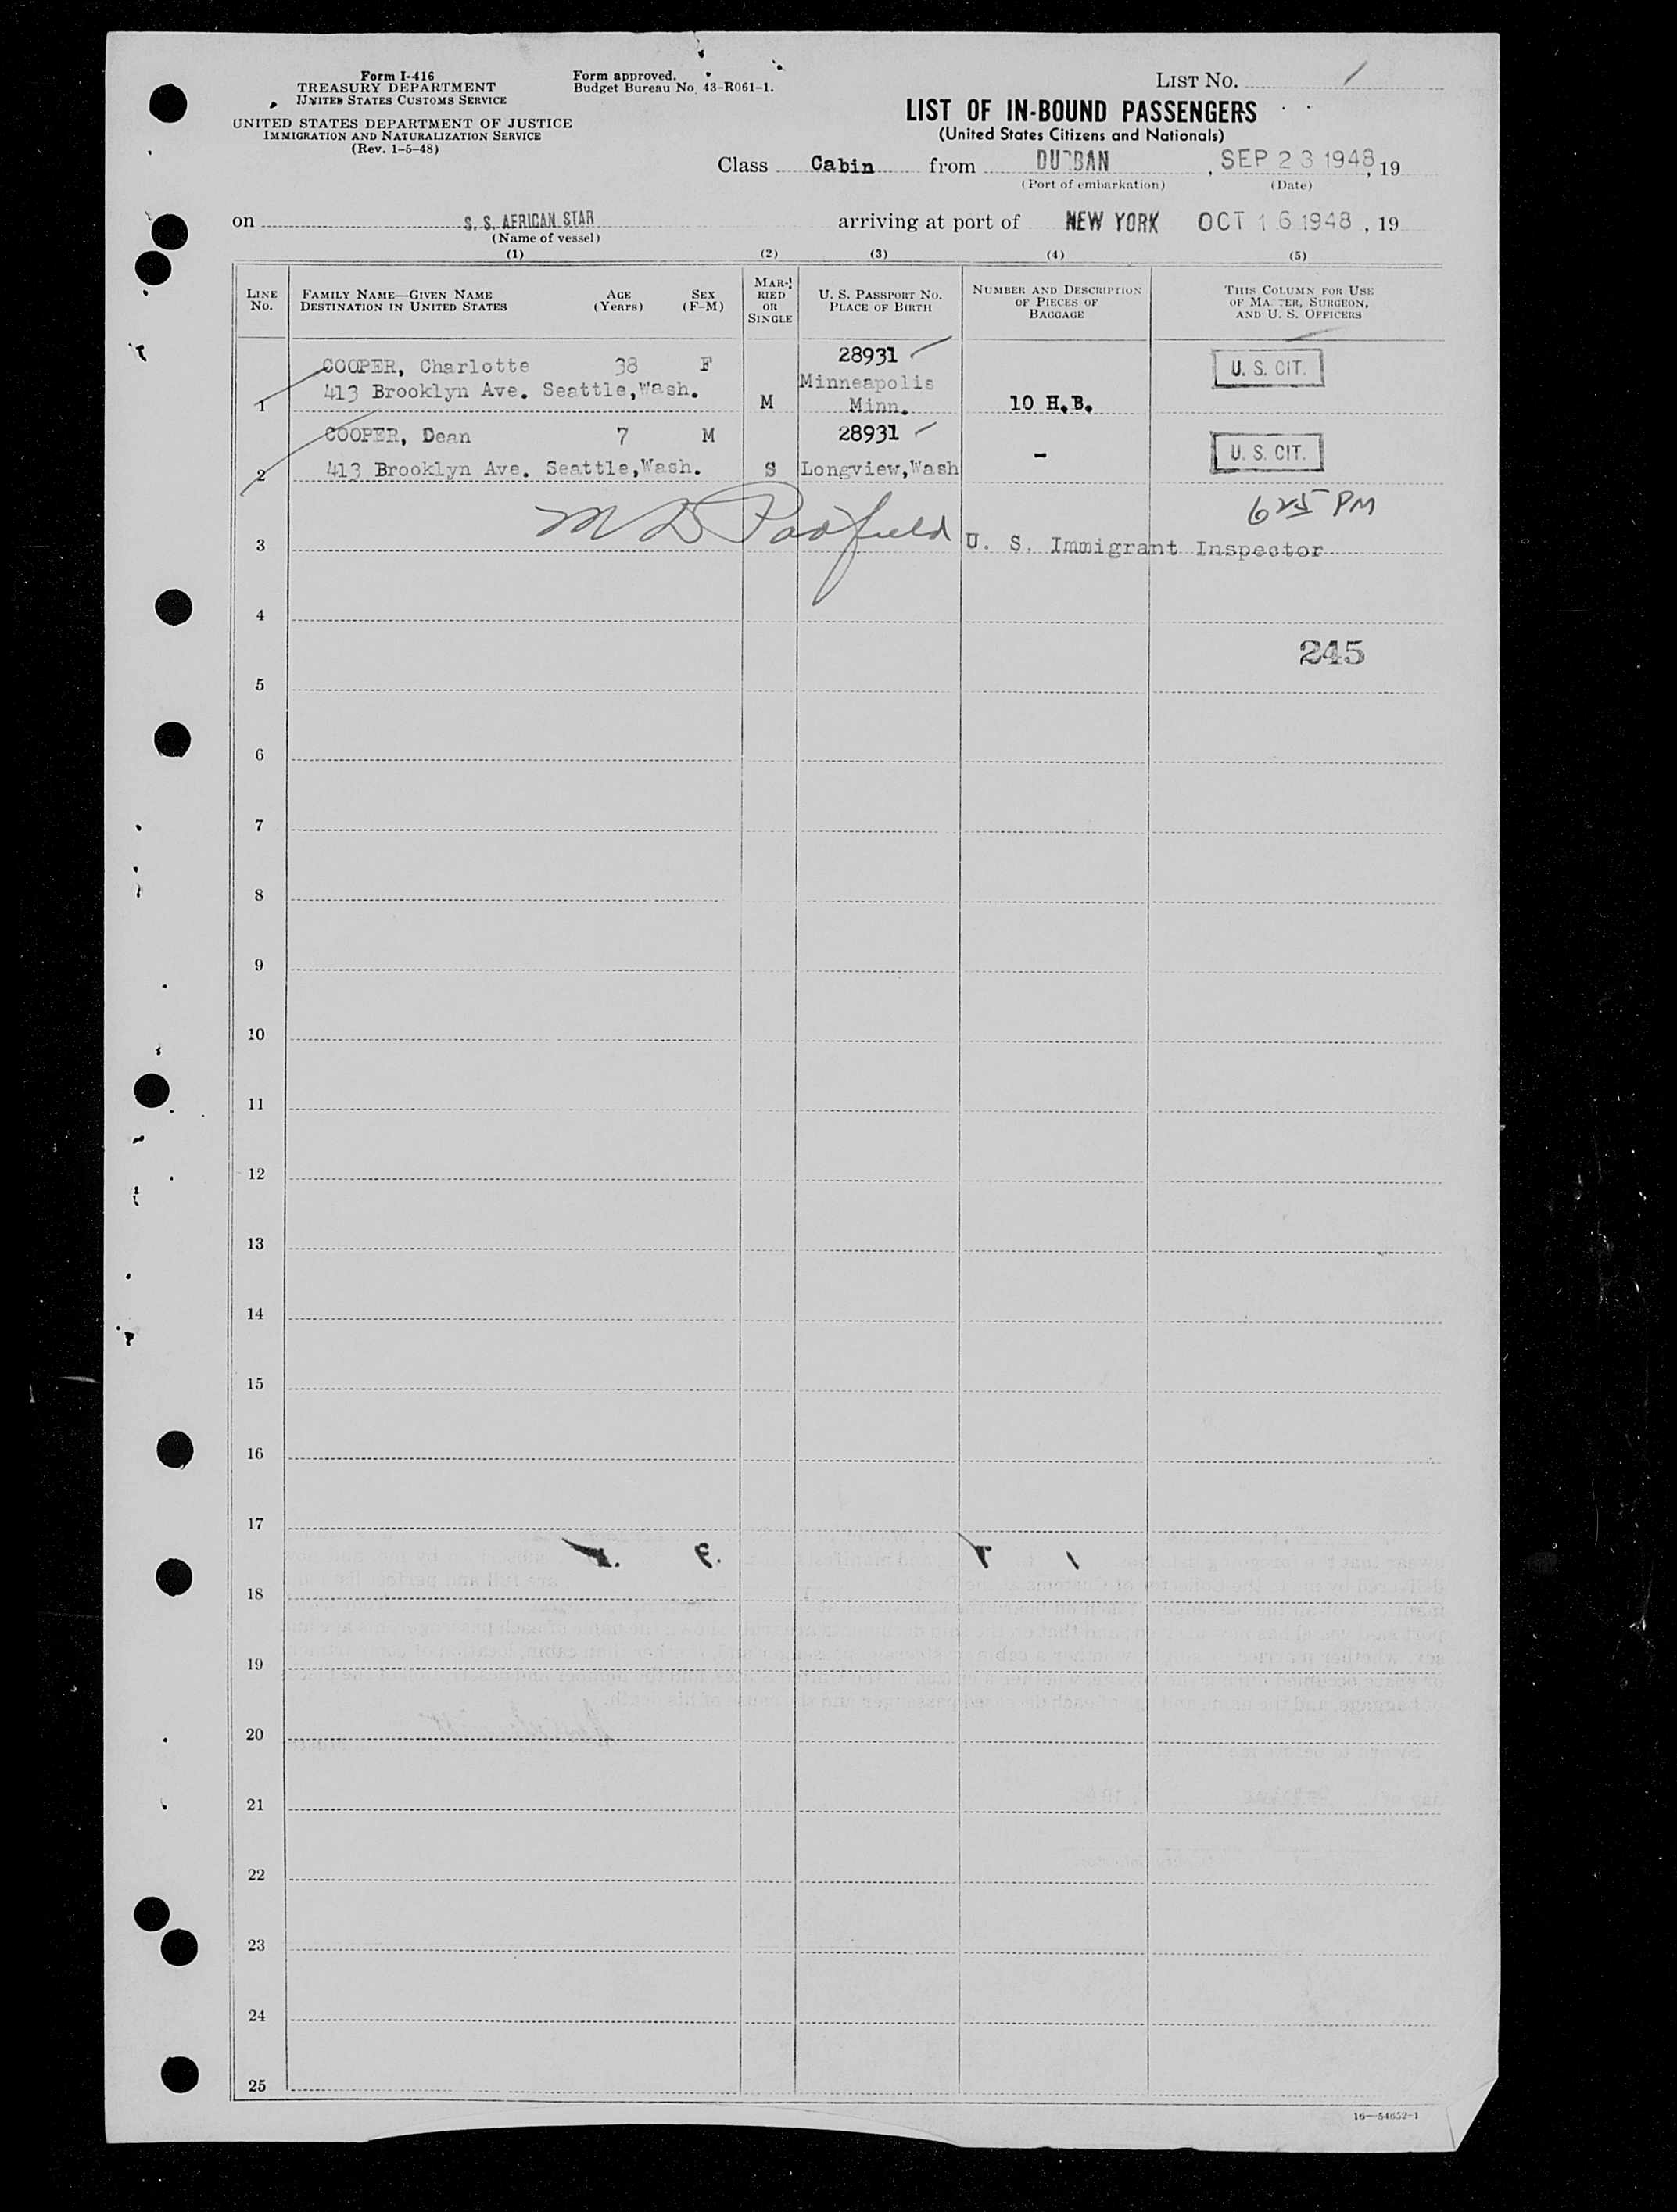 Form I-416
TREASURY DEPARTMENT
UNITED STATES CUSTOMS SERVICE
UNITED STATES DEPARTMENT OF JUSTICE
IMMIGRATION AND NATURALIZATION SERVICE
(Rev. 1-5-48)
Form approved.
Budget Bureau No. 43-R061-1.
LIST NO. 1
LIST OF IN-BOUND PASSENGERS
(United States Citizens and Nationals)
Class Cabin from DURBAN, SEP 23 1948, 19
(Port of embarkation) (Date)
on S. S. AFRICAN STAR arriving at port of NEW YORK OCT 16 1948, 19
(Name of vessel)
(1) (2) (3) (4) (5)
LINE No. FAMILY NAME—GIVEN NAME DESTINATION IN UNITED STATES AGE (Years) SEX (F-M) MARRIED OR SINGLE U. S. PASSPORT NO. PLACE OF BIRTH NUMBER AND DESCRIPTION OF PIECES OF BAGGAGE THIS COLUMN FOR USE OF MASTER, SURGEON, AND U. S. OFFICERS
COOPER, Charlotte 38 F 28931 U. S. CIT.
413 Brooklyn Ave. Seattle,Wash. Minneapolis
1 M Minn. 10 H.B.
COOPER, Dean 7 M 28931 U. S. CIT.
2 413 Brooklyn Ave. Seattle,Wash. S Longview,Wash -
625 PM
3 M D Padfield U. S. Immigrant Inspector
4
245
5
6
7
8
9
10
11
12
13
14
15
16
17
18
19
20
21
22
23
24
25
16—54652-1